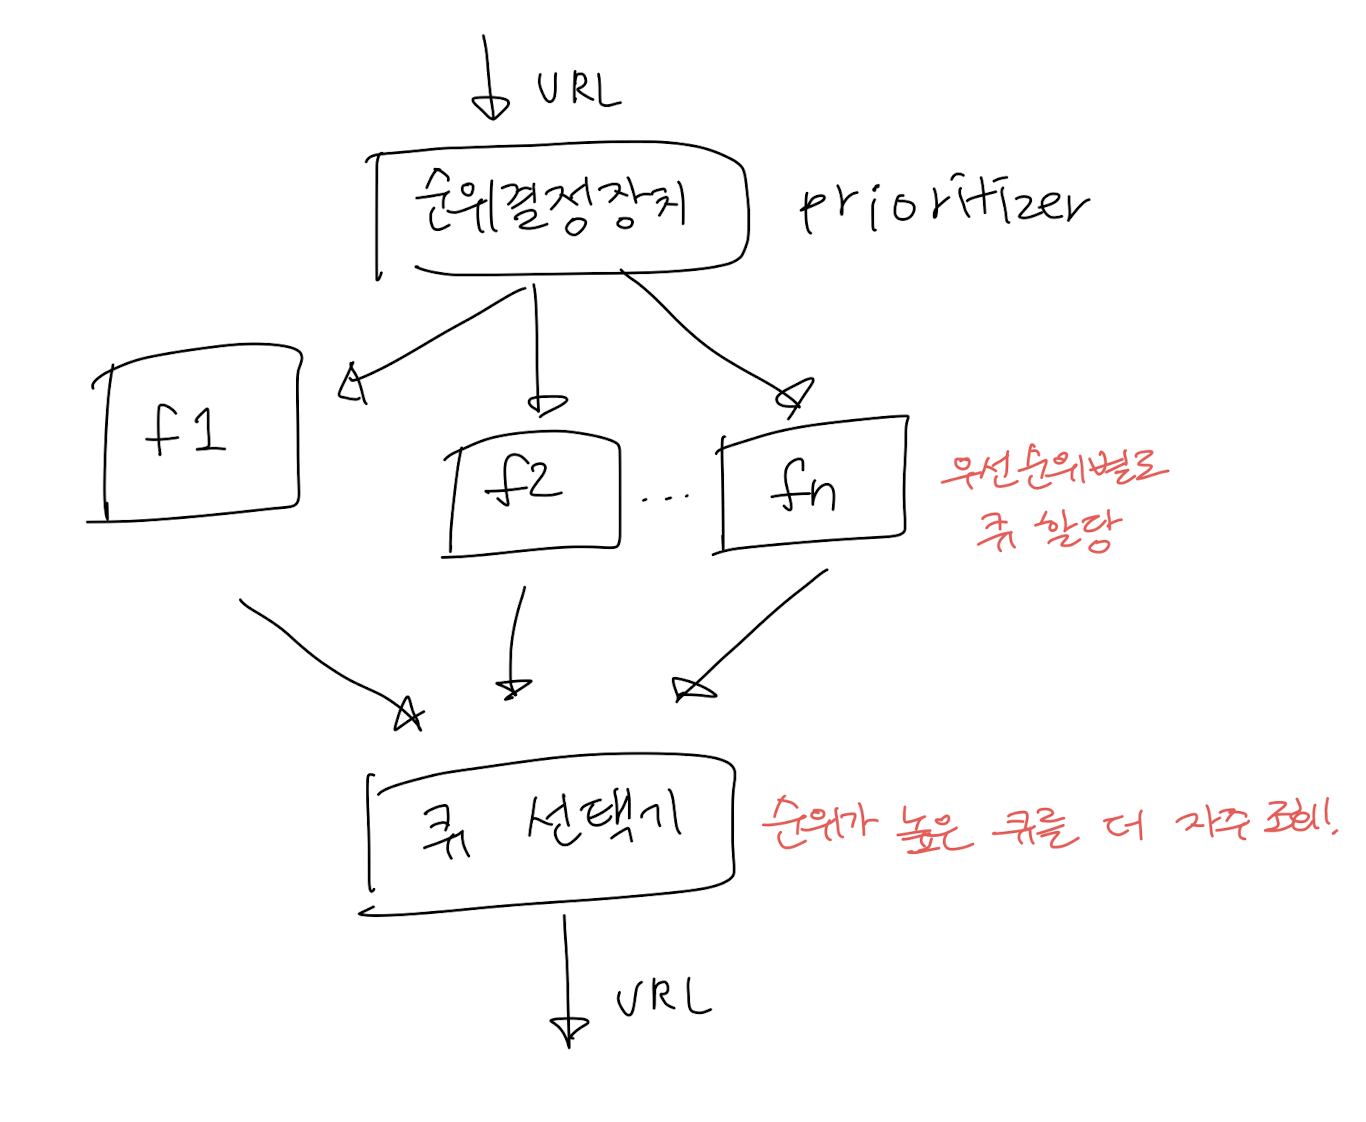 URL
순위결정장치
prioritizer
f1
f2
...
fn
우선순위별로
큐 할당
큐 선택기
순위가 높은 큐를 더 자주 조회!
URL